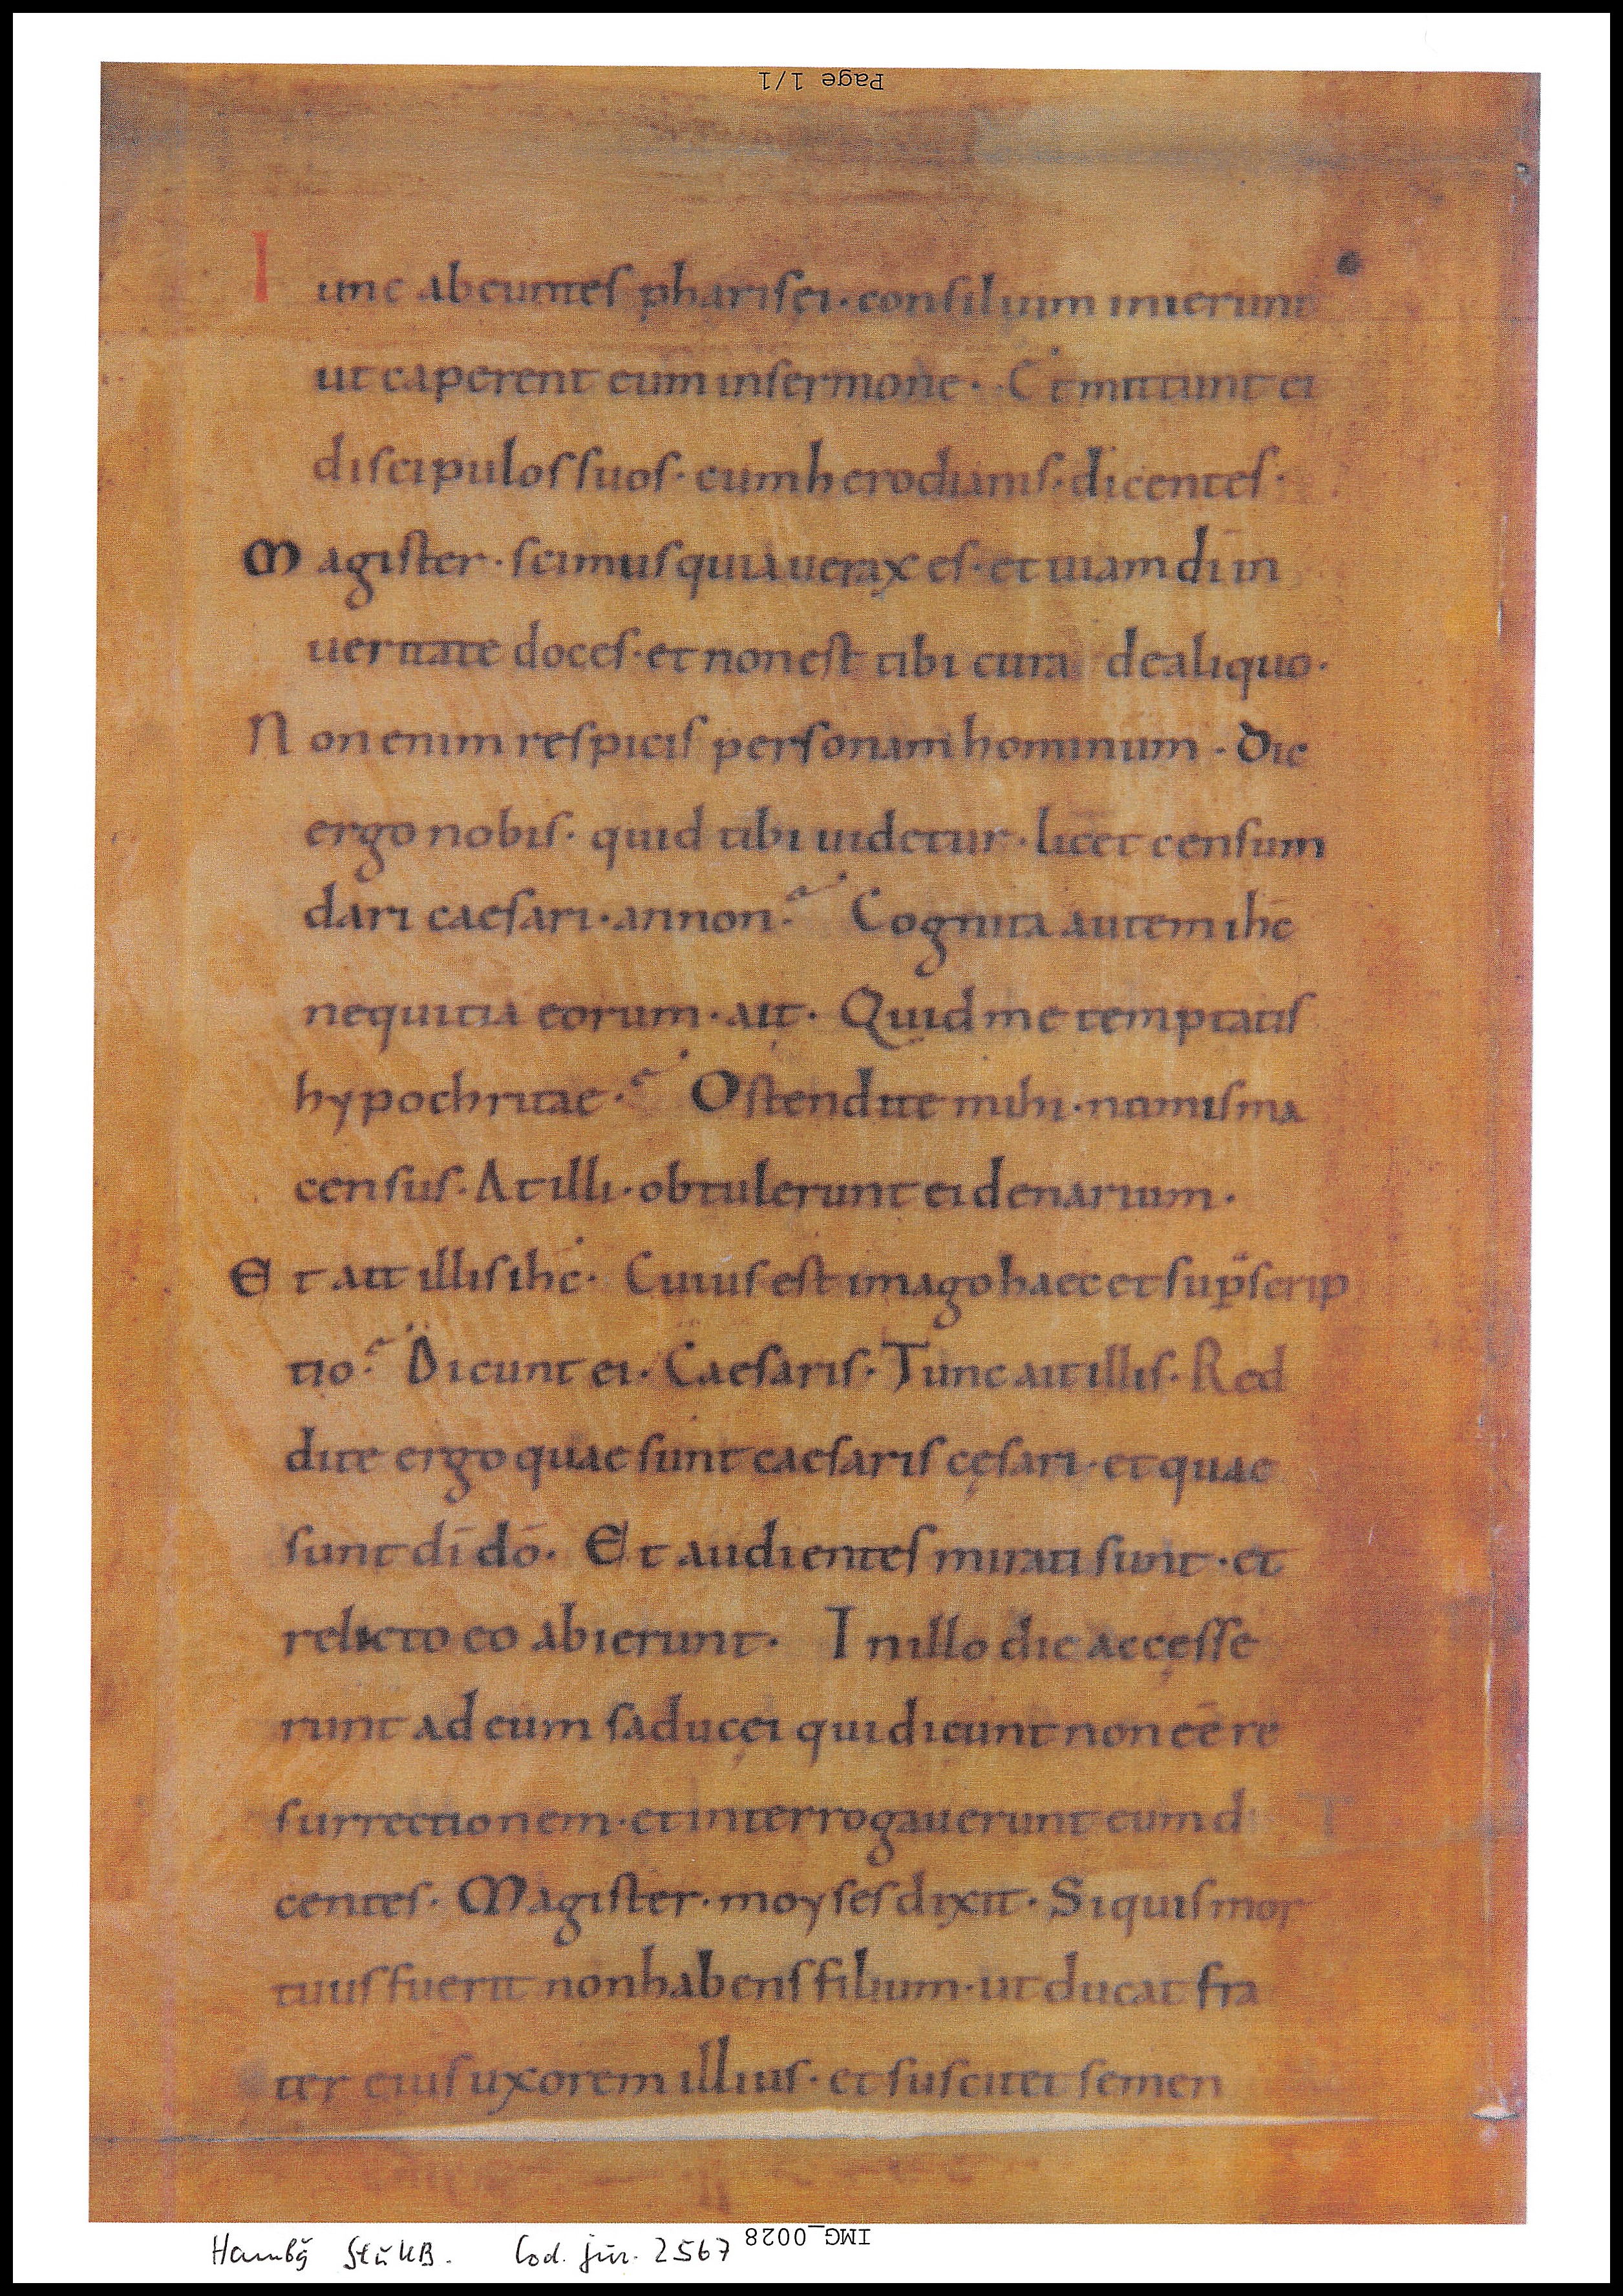 Page 1/1
Tunc abeuntes pharisęi · consilium inierunt
ut caperent eum in sermone · Et mittunt ei
discipulos suos · cum herodianis · dicentes ·
Magister · scimus quia uerax es · et uiam dī in
ueritate doces · et non est tibi cura de aliquo ·
Non enim respicis personam hominum · Dic
ergo nobis · quid tibi uidetur · licet censum
dari caesari · annon? Cognita autem ihc̄
nequitia eorum · ait · Quid me temptatis
hypochritae? Ostendite mihi · numisma
census · At illi · obtulerunt ei denarium ·
Et ait illis ihc̄ · Cuius est imago haec et sup̄scrip
tio? Dicunt ei · Caesaris · Tunc ait illis · Red
dite ergo quae sunt caesaris cęsari · et quae
sunt dī dō · Et audientes mirati sunt · et
relicto eo abierunt · In illo die accęsse
runt ad eum saducęi qui dicunt non eē re
surrectionem · et interrogauerunt eum di
centes · Magister · moyses dixit · Si quis mor
tuus fuerit non habens filium · ut ducat fra
ter eius uxorem illius · et suscitet semen
IMG_0028
Hambg StuUB. Cod. jur. 2567